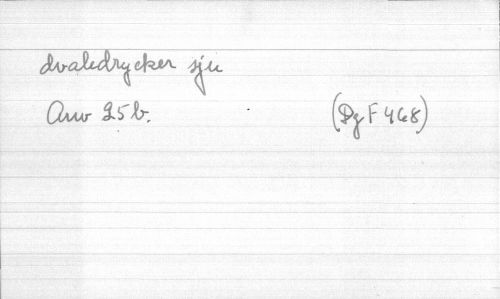 dvaledrycker sju
Anv 25b. (Dg F 468)